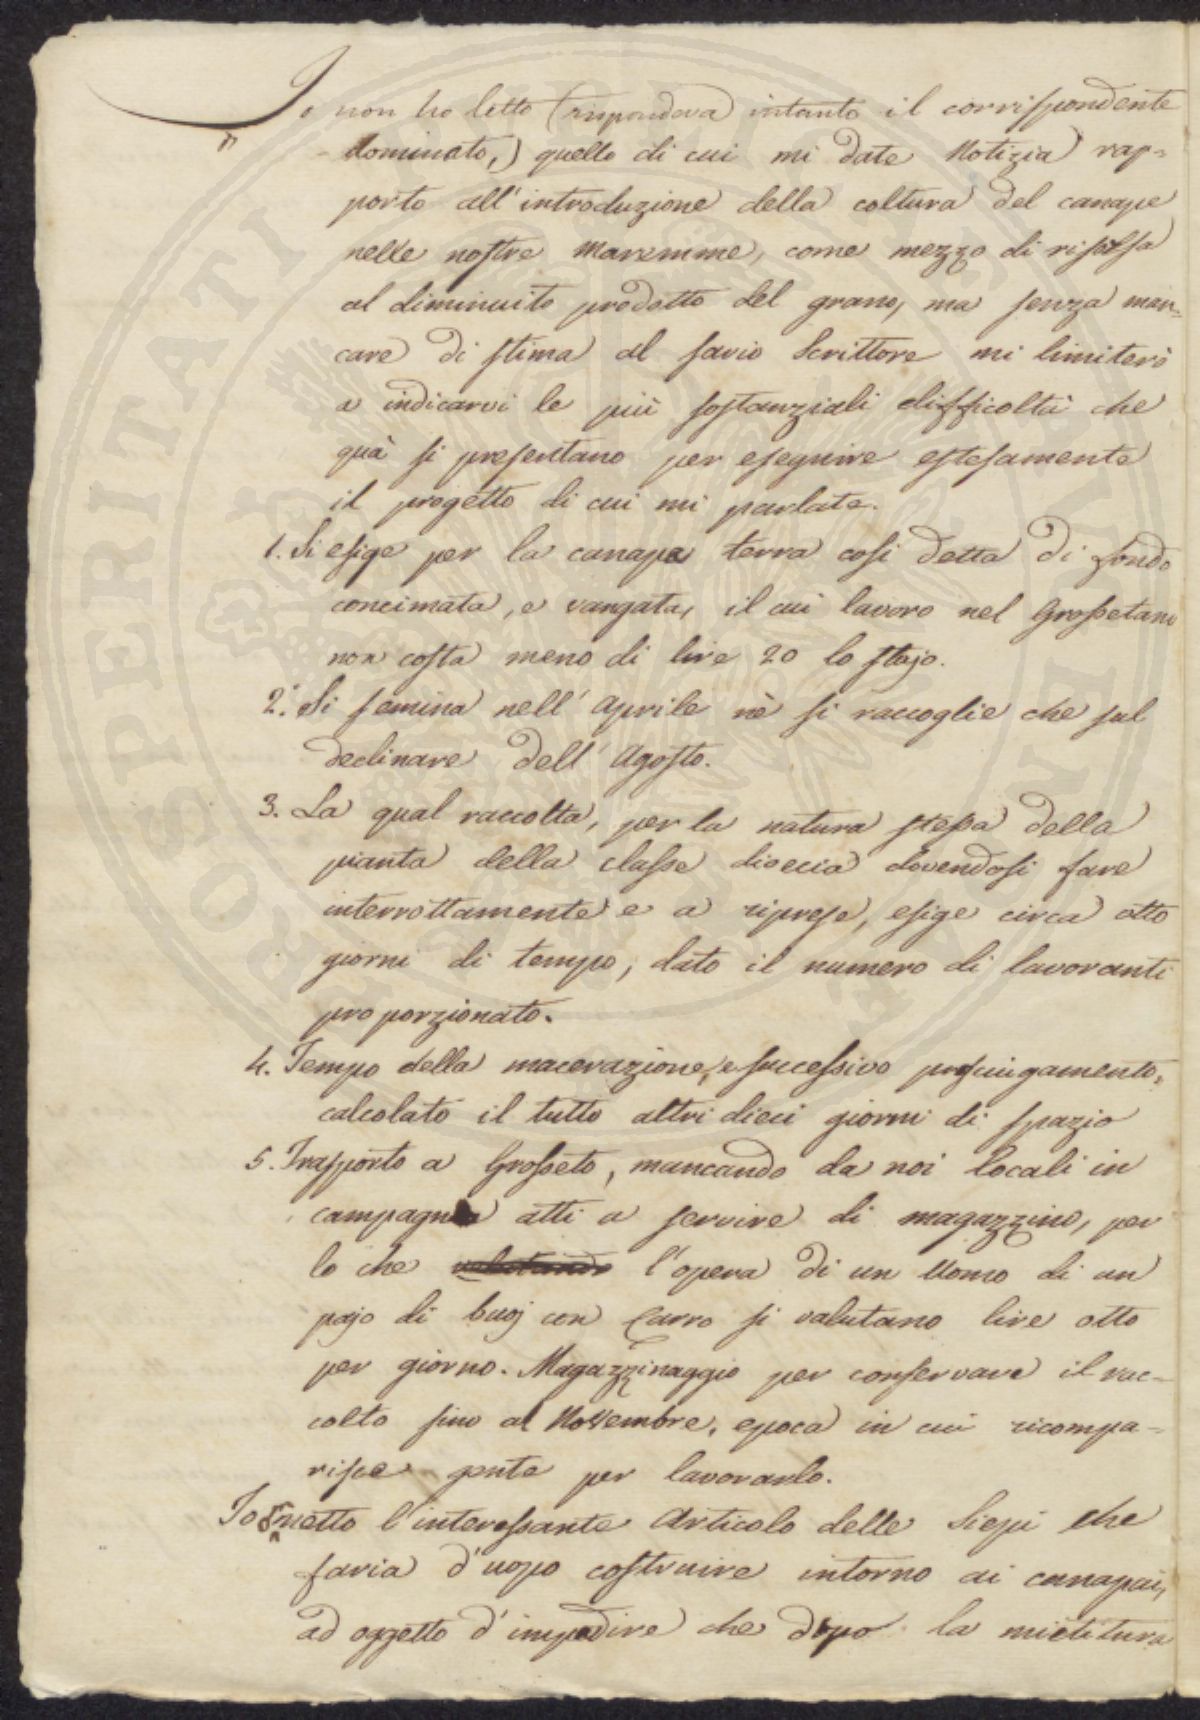 " Io non ho letto (rispondeva) intanto il corrispondente
dominato,) quello di cui mi date Notizia rap=
porto all'introduzione della coltura del canape
nelle nostre Maremme, come mezzo di risorsa
al diminuito prodotto del grano, ma senza man=
care di stima al savio Scrittore mi limiterò
a indicarvi le più sostanziali difficoltà che
quà si presentano per eseguire estesamente
il progetto di cui mi parlate.
1. Si esige per la canapa terra così detta di fondo
concimata, e vangata, il cui lavoro nel Grossetano
non costa meno di lire 20 lo stajo.
2. Si semina nell' Aprile nè si raccoglie che sul
declinare dell' Agosto.
3. La qual raccolta, per la natura stessa della
pianta della classe dioecia dovendosi fare
interrottamente e a riprese, esige circa otto
giorni di tempo, dato il numero di lavoranti
proporzionato.
4. Tempo della macerazione, e successivo prosciugamento,
calcolato il tutto altri dieci giorni di spazio
5. Trasporto a Grosseto, mancando da noi Locali in
campagna atti a servire di magazzino, per
lo che valutando l'opera di un Uomo di un
pajo di buoj con Carro si valutano lire otto
per giorno. Magazzinaggio per conservare il rac=
colto sino al Novembre, epoca in cui ricompa=
risce gente per lavorarlo.
Io ometto l'interessante Articolo delle Siepi che
faria d'uopo costruire intorno ai canapai,
ad oggetto d'impedire che dopo la mietitura
PROSPERITATI PUBLICAE